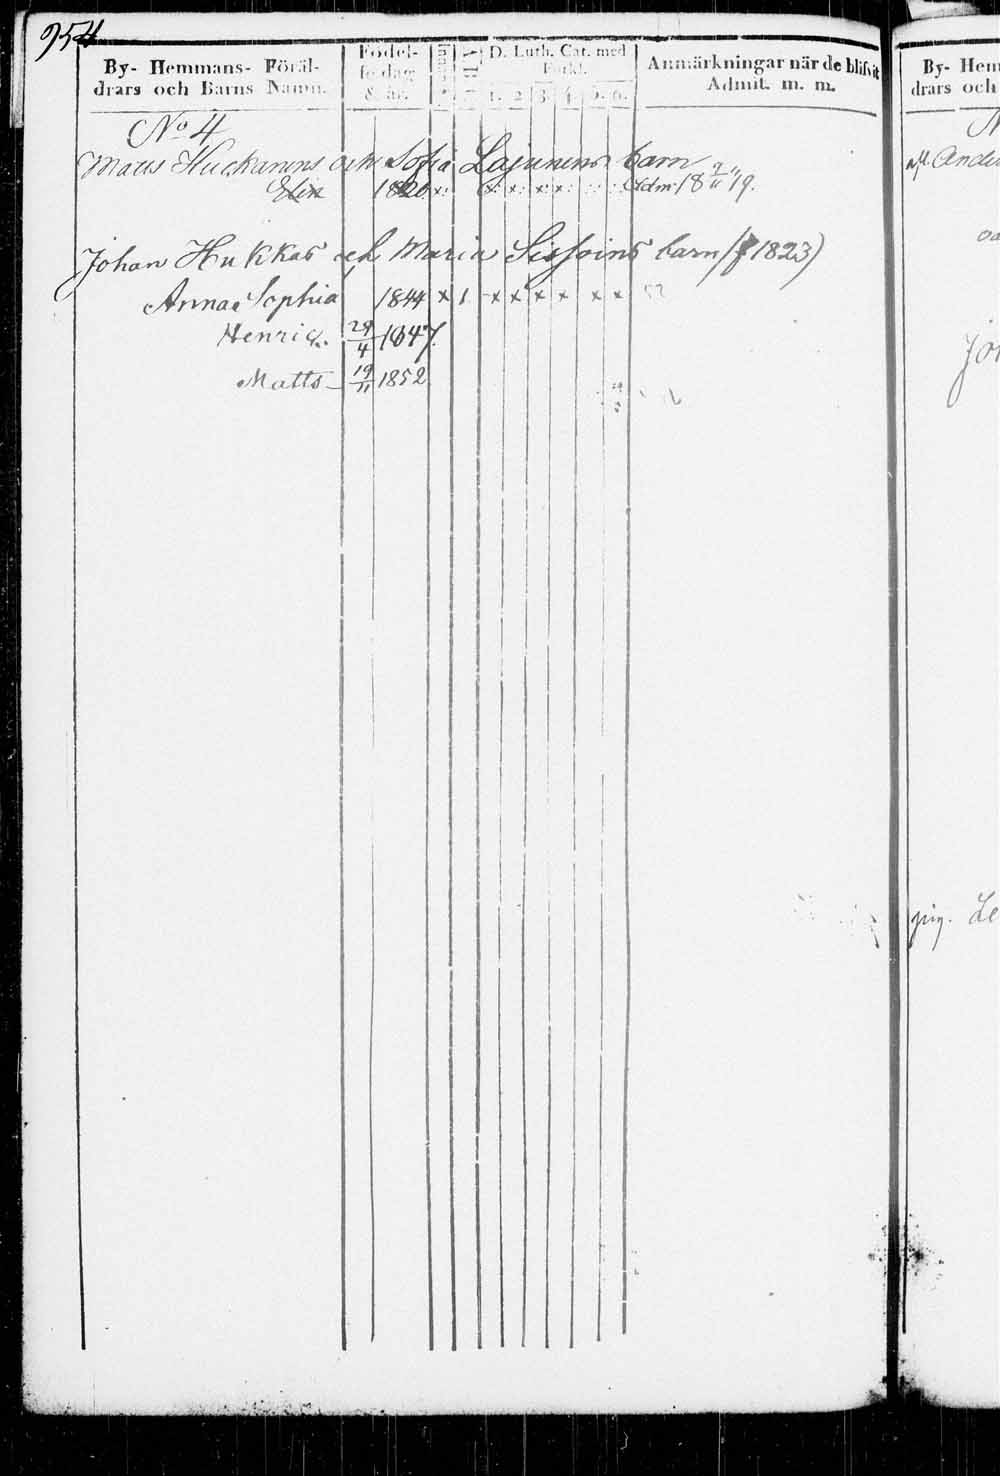 954
By- Hemmans- Föräl-
drars och Barns Namn.
Födel-
se dag
& år.
D. Luth. Cat. med
Förkl.
1. 2. 3. 4. 5. 6.
Anmärkningar när de blifvit
Admit. m. m.
No 4
Matts Huckanens och Sofia Lajunens barn
Elin 1820 x x x x x Adm: 18 2/11 19.
Johan Hukkas och Maria Sissoins barn (f 1823)
Anna Sophia 1844 x 1 x x x x x x
Henric. 29/4 1847.
Matts 19/11 1852
By- Hem
drars och